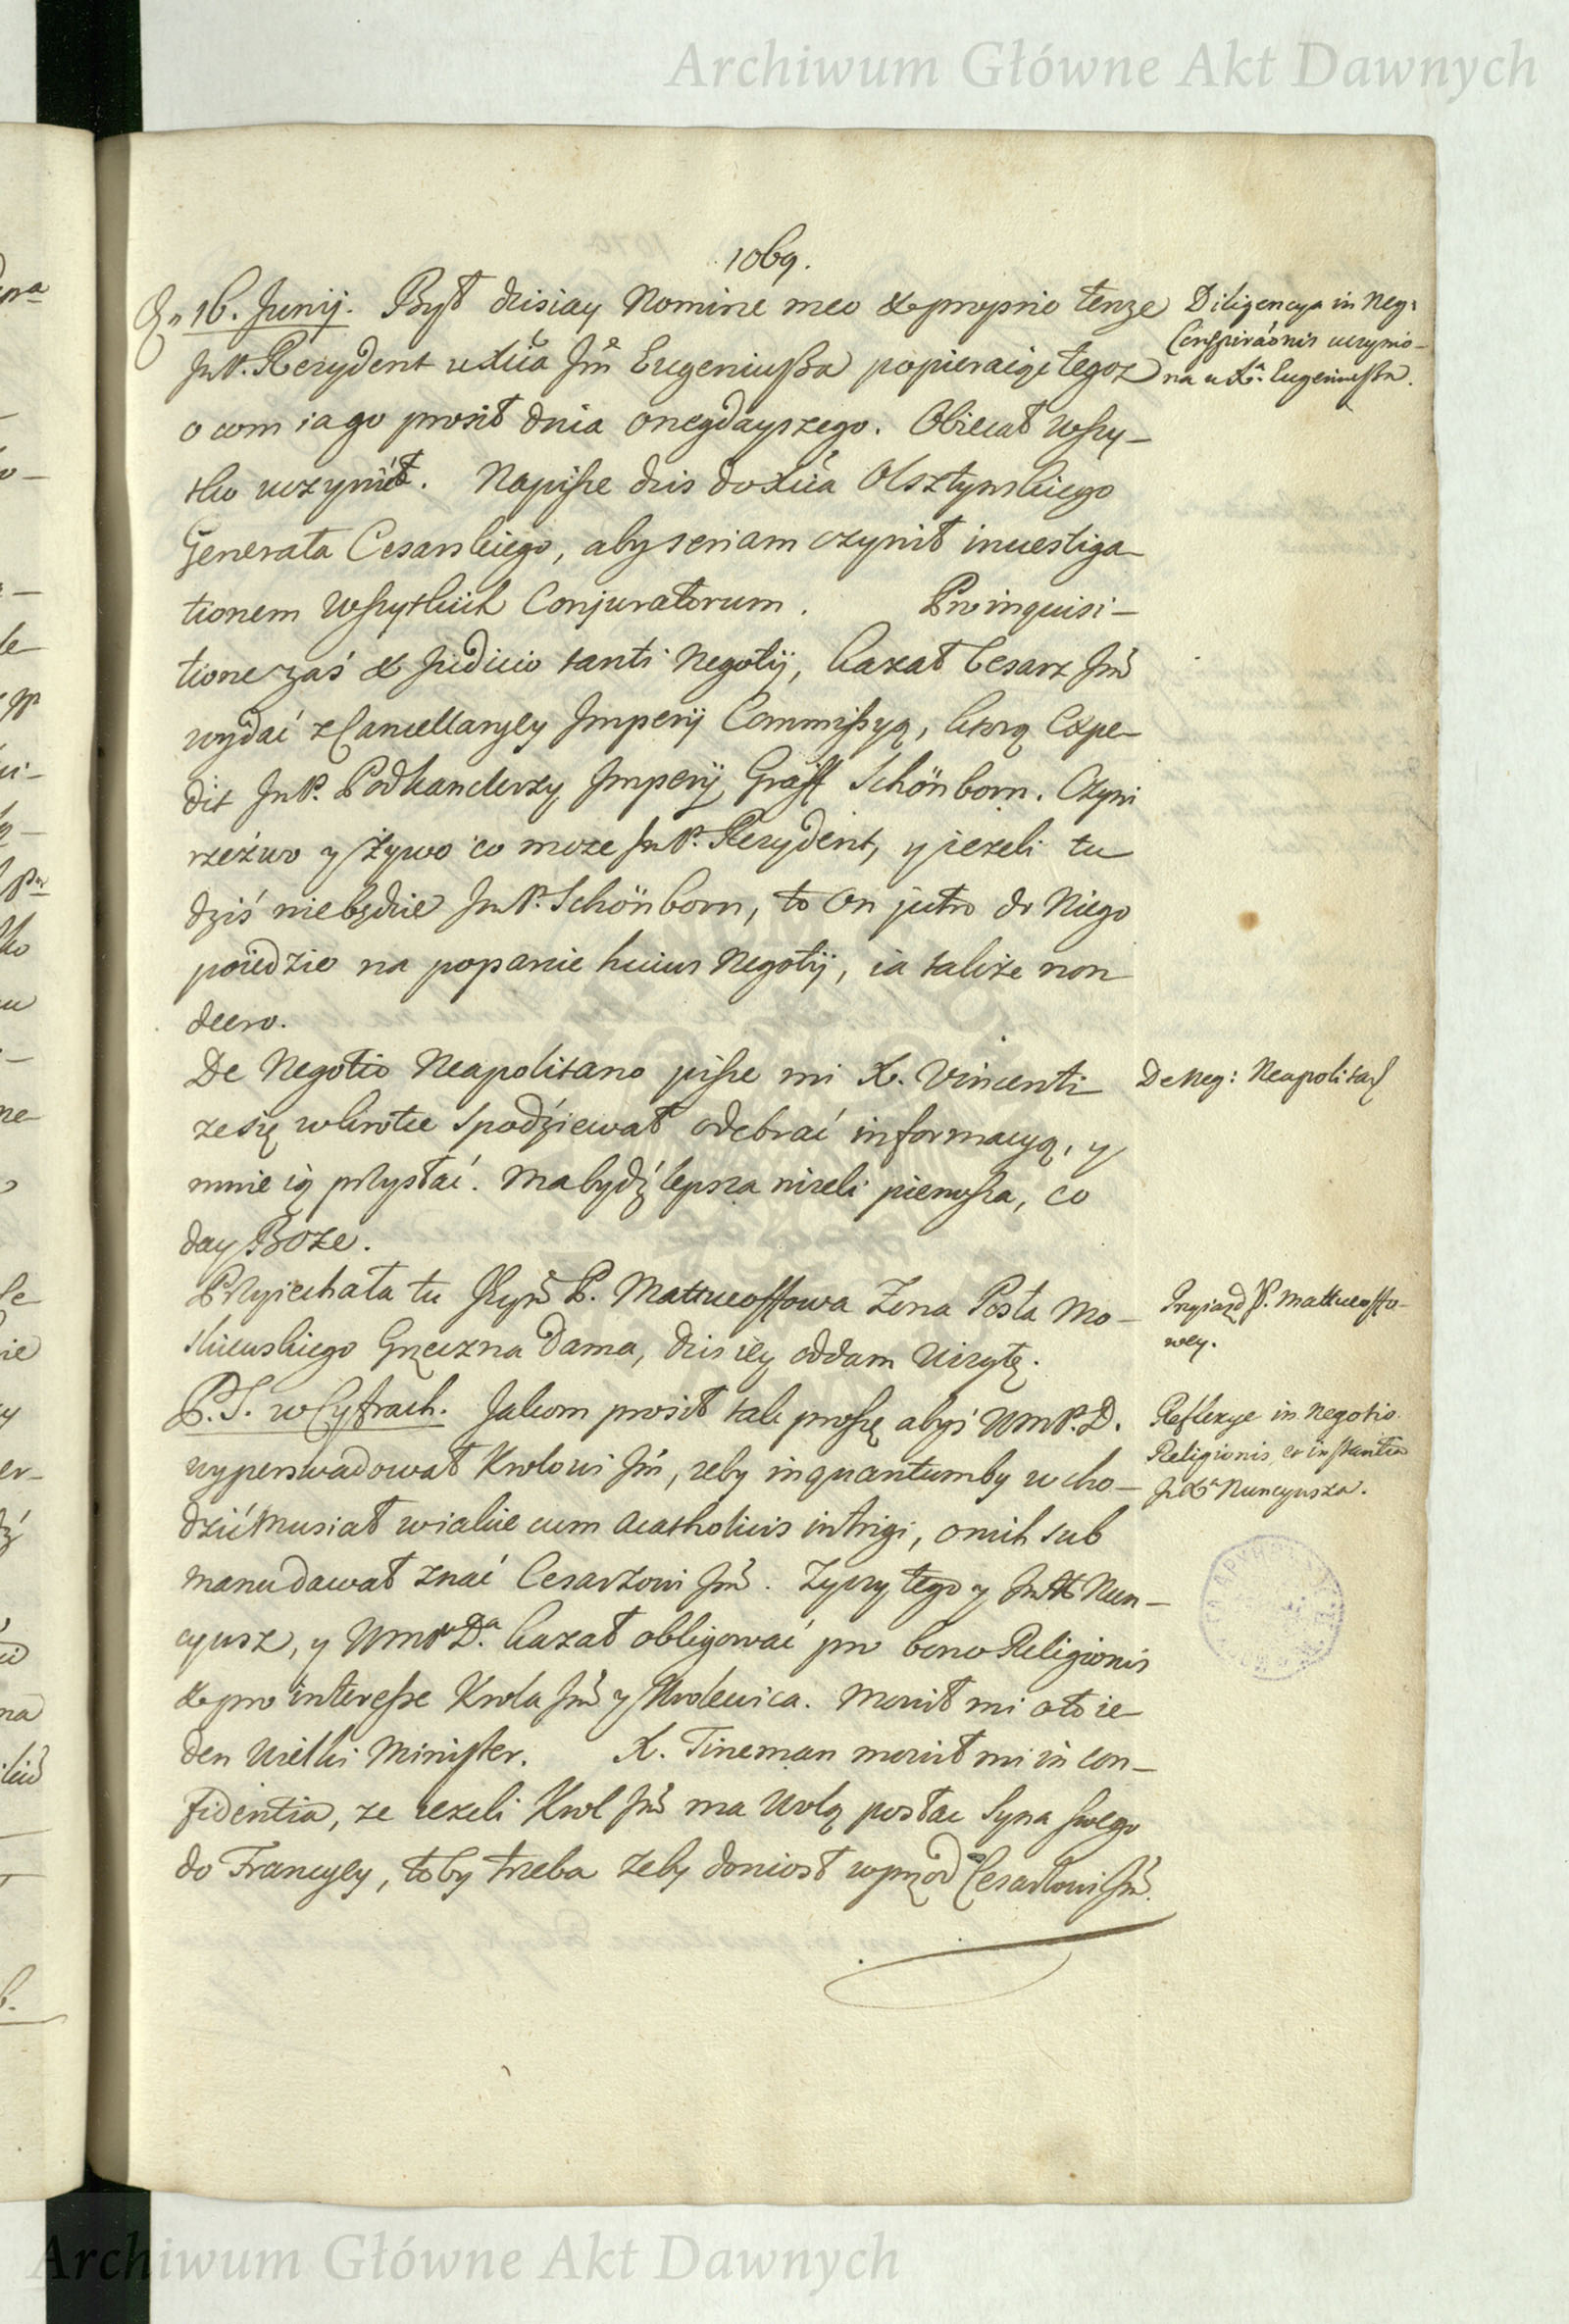 Archiwum Główne Akt Dawnych
1069.
16. Junij. Był dzisiay Nomine meo & proprio tenze
JmP. Rezydent u Xcia Jm Eugeniusza popieraiąc tegoz
o com ia go prosił dnia onegdayszego. Obiecał wszy-
stko uczynić. Napisze dzis do Xcia Olsztynskiego
Generała Cesarskiego, aby seriam czynił inuestiga-
tionem wszystkich Conjuratorum. Pro inquisi-
tione zaś & Judicio tanti Negotij, kazał Cesarz Jmć
wydać z Cancellaryey Imperij Commissyą, ktorą Expe-
dit JmP. Podkanclerzy Imperij Graff Schönborn. Czyni
rzeźwo y żywo co moze JmP. Rezydent, y jezeli tu
dziś niebędzie JmP. Schönborn, to On jutro do Niego
poiedzie na poparcie huius Negotij, ia takze non
deero.
De Negotio Neapolitano pisze mi X. Vincenti
ze się wkrotce spodziewał odebrać informacyą, y
mnie ią przysłać. Ma bydź lepsza nizeli pierwsza, co
day Boze.
Przyiechała tu P. Mattueoffowa Zona Posła Mo-
skiewskiego Grzeczna Dama, dzis iey oddam Wizytę.
P.S. w Cyfrach. Jakom prosił tak proszę abyś WmP.D.
wyperswadował Krolowi Jmć, zeby inquantumby wcho-
dzić musiał w iakie cum Acatholicis intrigi, o nich sub
manu dawał znać Cesarzowi Jmć. Zyczy tego y JmX Nun-
cyusz, y WmPa Da. kazał obligować pro bono Religionis
& pro interesse Krola Jmć y Krolewica. Mowił mi oto ie-
den Wielki Minister. X. Tineman mowił mi in con-
fidentia, ze iezeli Krol Jmć ma Wolą posłac Syna swego
do Francyey, toby trzeba zeby doniosł wprzod Cesarzowi Jmć.
Diligencya in Neg:
Conspiraonis uczynio-
na u Xa. Eugeniusza.
De Neg: Neapolitan
Przyiazd P. Mattueoffo-
wey.
Reflexye in Negotio
Religionis, et instantia
JmXa Nuncyusza.
Archiwum Główne Akt Dawnych